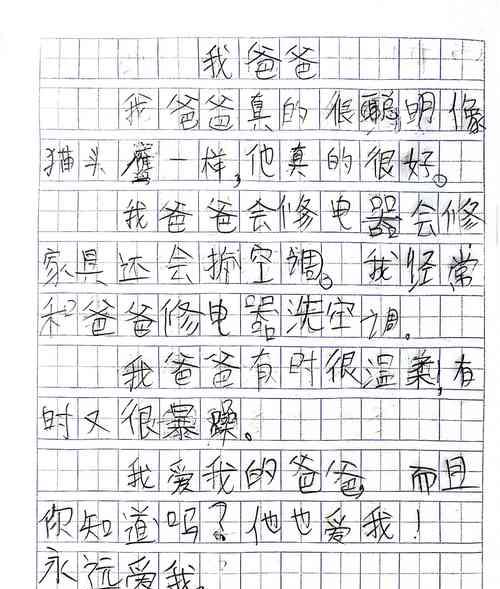 我爸爸
我爸爸真的很聪明像
猫头鹰一样,他真的很好。
我爸爸会修电器会修
家具还会拆空调。我经常
和爸爸修电器洗空调。
我爸爸有时很温柔,有
时又很暴躁。
我爱我的爸爸,而且
你知道吗?他也爱我!
永远爱我。